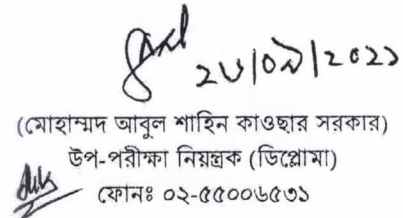 ২৮|০৯|২০২১
(মোহাম্মদ আবুল শাহিন কাওছার সরকার)
উপ-পরীক্ষা নিয়ন্ত্রক (ডিপ্লোমা)
ফোনঃ ০২-৫৫০০৬৫৩১